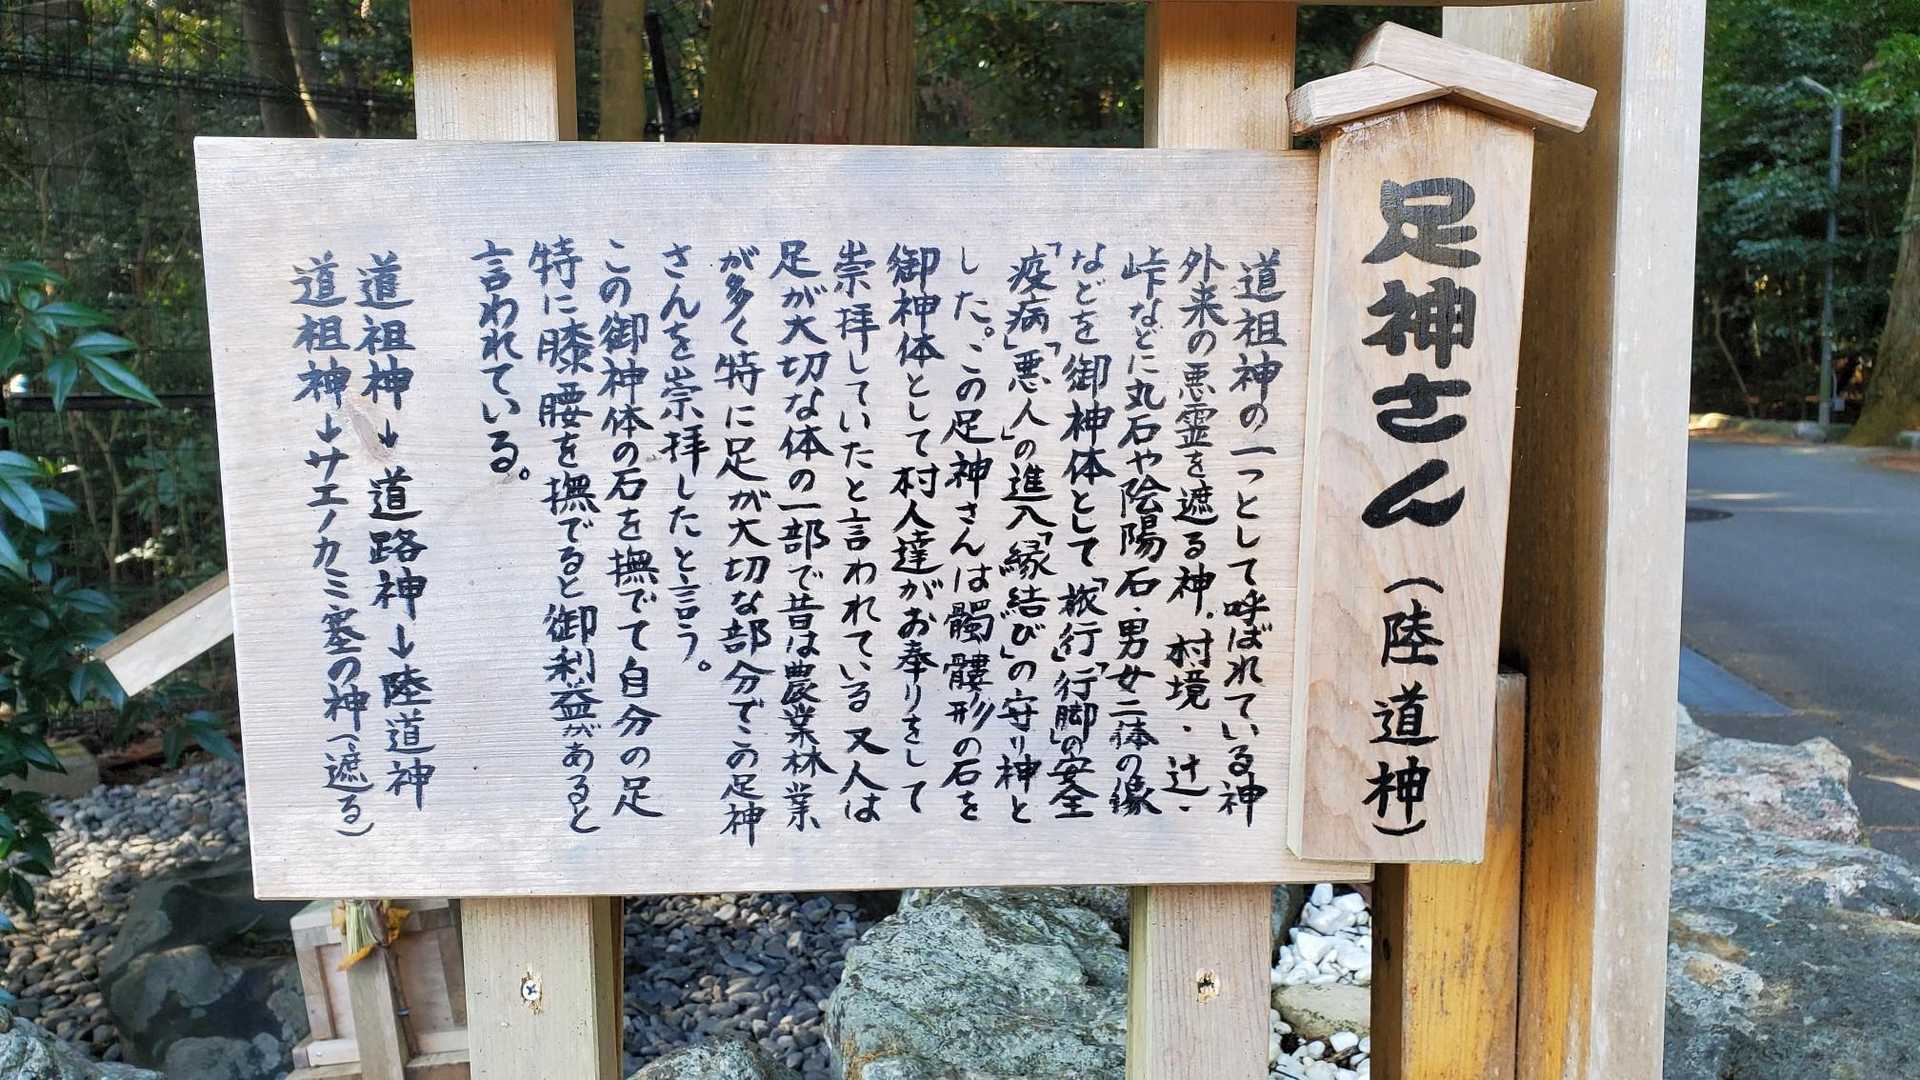 足神さん(陸道神)
道祖神の一つとして呼ばれている神
外来の悪霊を遮る神。村境・辻・
峠などに丸石や陰陽石・男女二体の像
などを御神体として「旅行」「行脚」の安全
「疫病」「悪人」の進入「縁結び」の守り神と
した。この足神さんは髑髏形の石を
御神体として村人達がお奉りをして
崇拝していたと言われている又人は
足が大切な体の一部で昔は農業林業
が多く特に足が大切な部分でこの足神
さんを崇拝したと言う。
この御神体の石を撫でて自分の足
特に膝腰を撫でると御利益があると
言われている。
道祖神→道路神→陸道神
道祖神→サエノカミ塞の神(遮る)